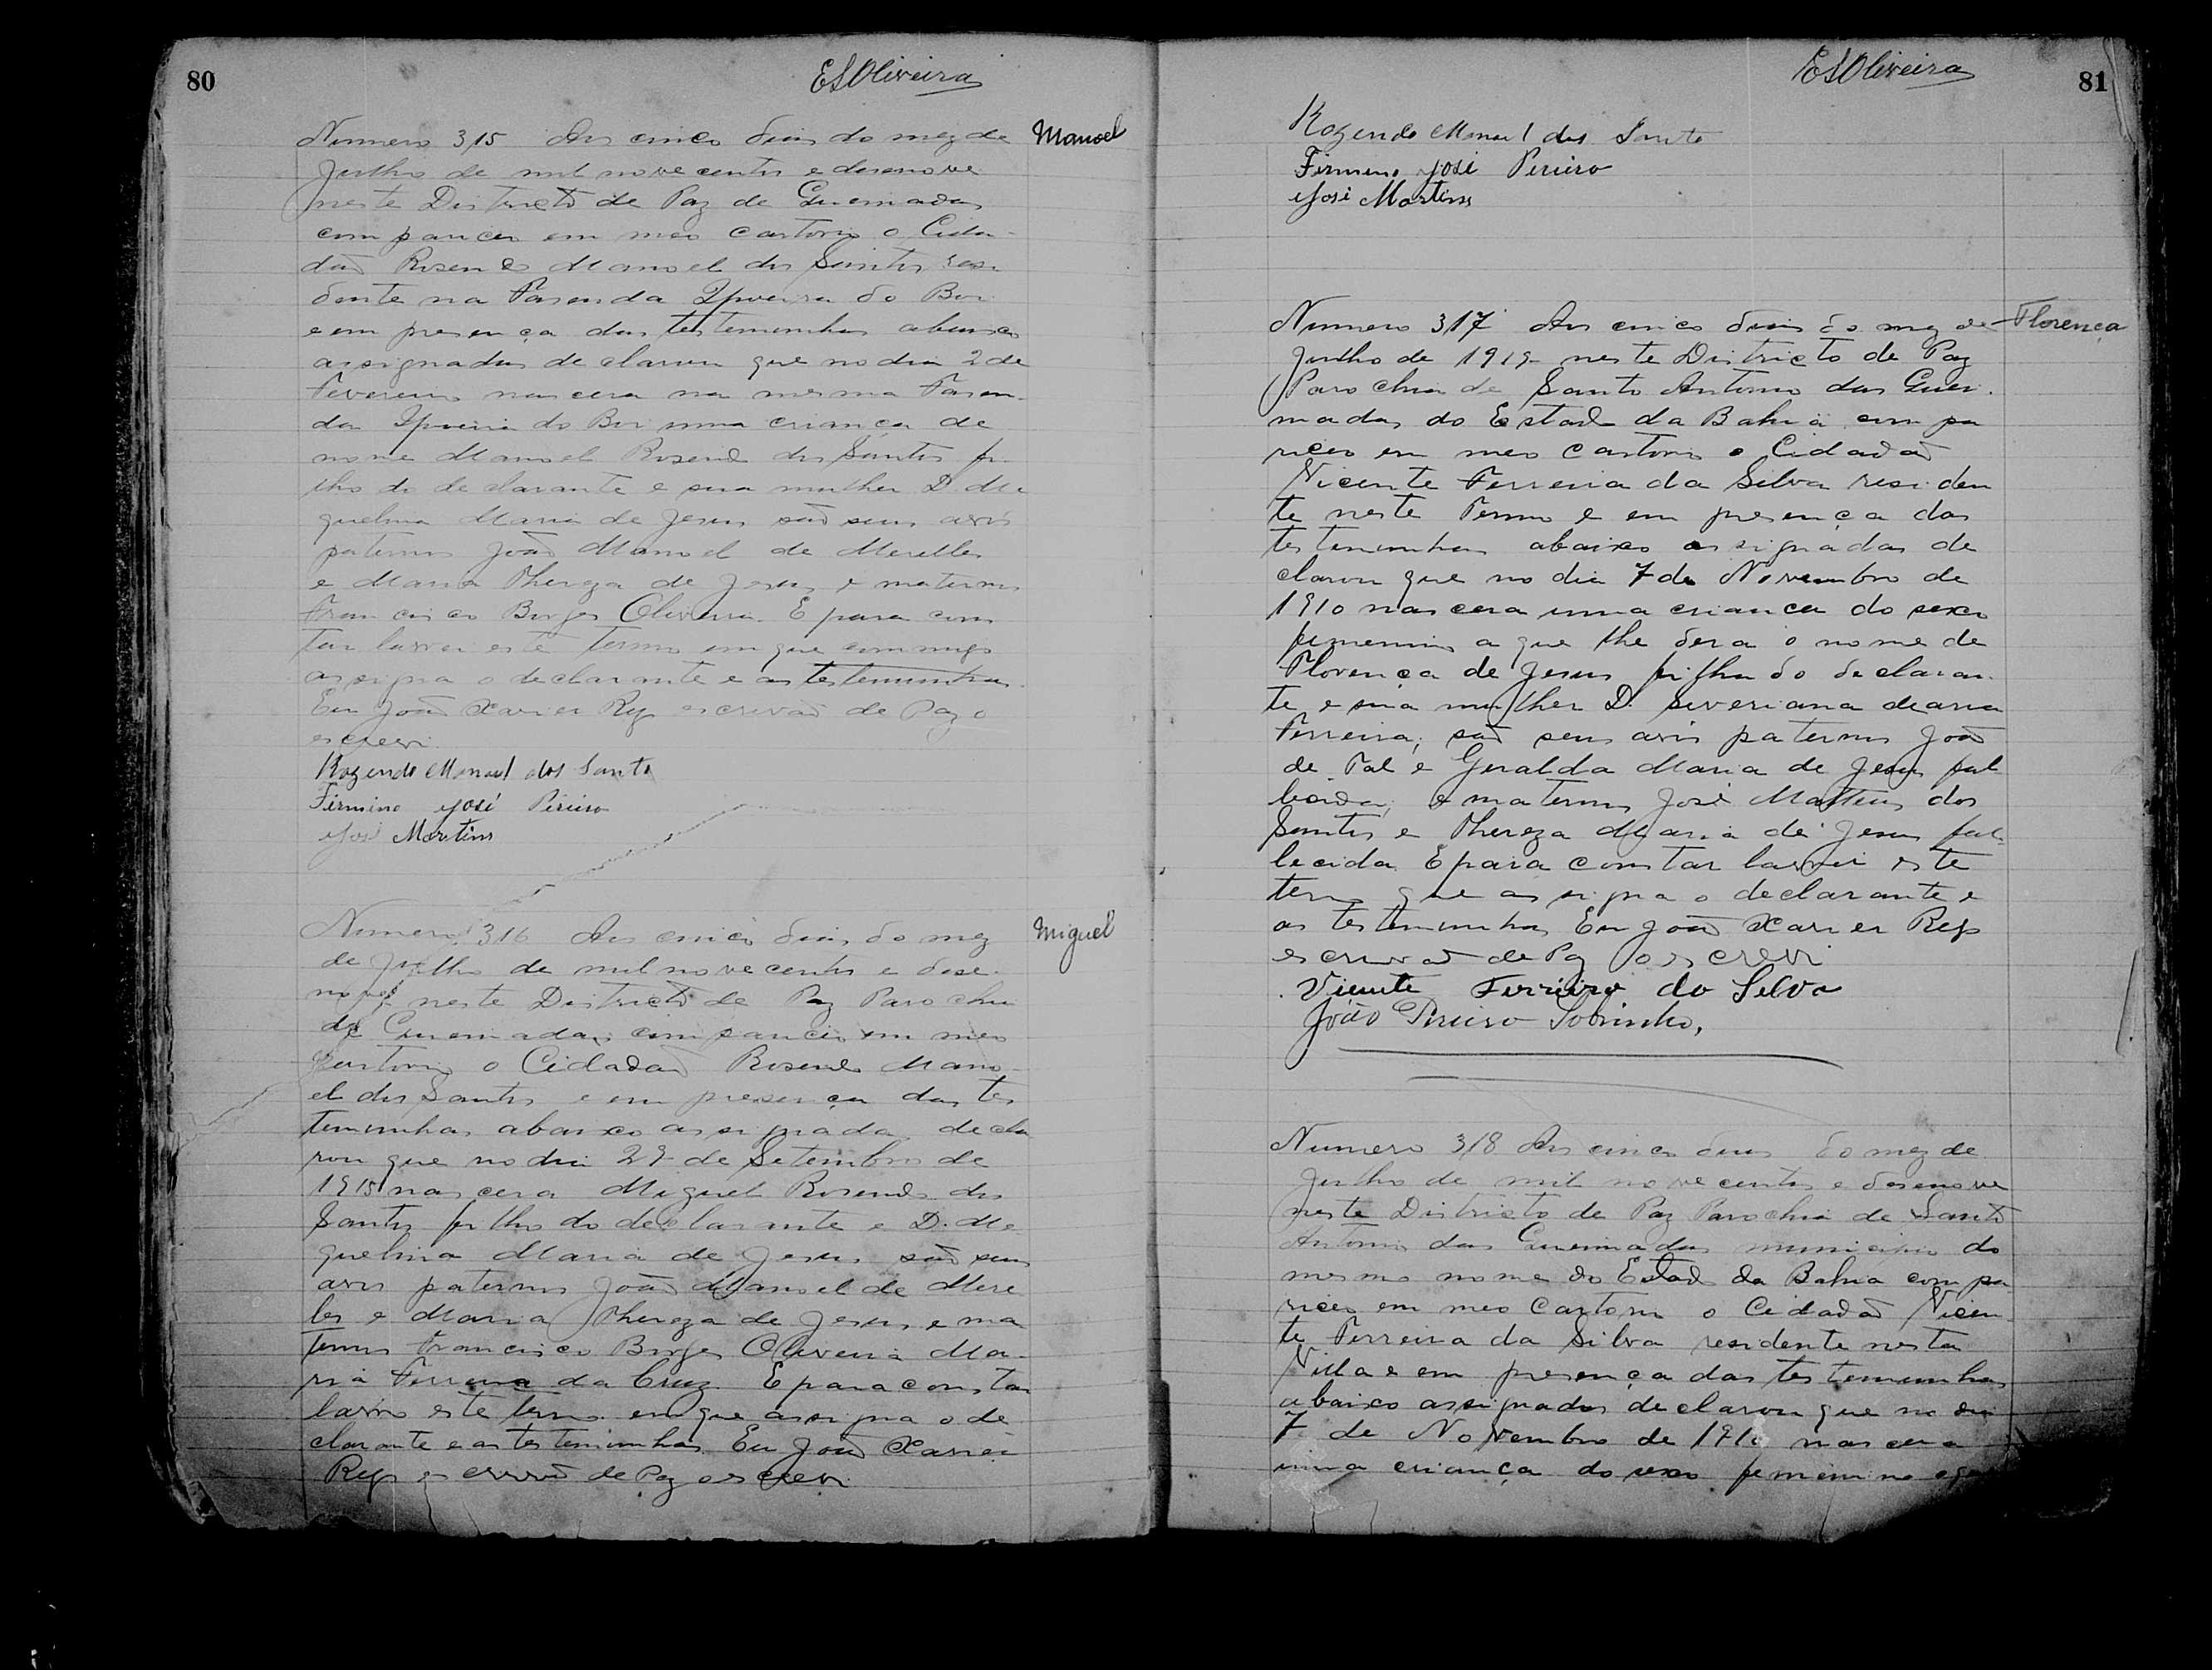 80
ESOliveira
Numero 315 Aos cinco dias do mez de
Manoel
Julho de mil nove centos e desenove
neste Districto de Paz de Queimadas
compareceu em meo cartorio o Cida-
dão Rosendo Manoel dos Santos resi
dente na Fasenda Ipueira do Boi
e em presença das testemunhas abaixo
assignadas declarou que no dia 2 de
Fevereiro nascera na mesma Fasen-
da Ipueira do Boi uma criança de
nome Manoel Rosendo dos Santos fi-
lho do declarante e sua mulher D. Mi
quelina Maria de Jesus são seus avós
paternos João Manoel de Merelles
e Maria Thereza de Jesus e maternos
Francisco Borges Oliveira. E para cons
tar lavrei este termo em que commigo
assigna o declarante e as testemunhas.
Eu João Xavier Rego escrivão de Paz o
escrevi.
Rozendo Manoel dos Santo
Firmino José Pereiro
José Martins
Numero 316 Aos cinco dias do mez
Miguel
de Julho de mil nove centos e dese-
nove neste Districto de Paz Parochia
de Queimadas compareceu em meo
Cartorio o Cidadão Rosendo Mano-
el dos Santos e em presença das tes
temunhas abaixo assignada decla
rou que no dia 29 de Setembro de
1915 nascera Miguel Rosendo dos
Santos filho do declarante e D. Mi
quelina Maria de Jesus são seus
avos paternos João Manoel de Mere
les e Maria Thereza de Jesus e ma
ternos Francisco Borges Oliveira Ma-
ria Ferreira da Cruz. E para constar
lavro este termo em que assigna o de
clarante e as testemunhas. Eu João Xavier
Rego escrivão de Paz o escrevi.
81
ESOliveira
Rozendo Manoel dos Santo
Firmino José Pereiro
José Martins
Numero 317 Aos cinco dias do mez de
Florença
Julho de 1919 neste Districto de Paz
Parochia de Santo Antonio das Quei-
madas do Estado da Bahia compa
receo em meo cartorio o Cidadão
Vicente Ferreira da Silva residen
te neste Termo e em presença das
testemunhas abaixo assignadas de
clarou que no dia 7 de Novembro de
1910 nascera uma criança do sexo
femenino a que lhe dera o nome de
Florença de Jesus filha do declaran-
te e sua mulher D. Severiana Maria
Ferreira; são seus avós paternos João
de Tal e Geralda Maria de Jesus fal
lecida, e maternos José Matteus dos
Santos e Thereza Maria de Jesus fal-
lecida. E para constar lavrei este
termo que assigna o declarante e
as testemunhas Eu João Xavier Rego
escrivão de Paz o escrevi
Vicente Ferreira da Silva
João Pereiro Sobrinho,
Numero 318 Aos cinco dias do mez de
Julho de mil nove centos e desenove
neste Districto de Paz Parochia de Santo
Antonio das Queimadas municipio do
mesmo nome do Estado da Bahia compa
receo em meo Cartorio o Cidadão Vicen-
te Ferreira da Silva residente nesta
Villa e em presença das testemunhas
abaixo assignadas declarou que no dia
7 de Novembro de 1910 nascera
uma criança do sexo feminino